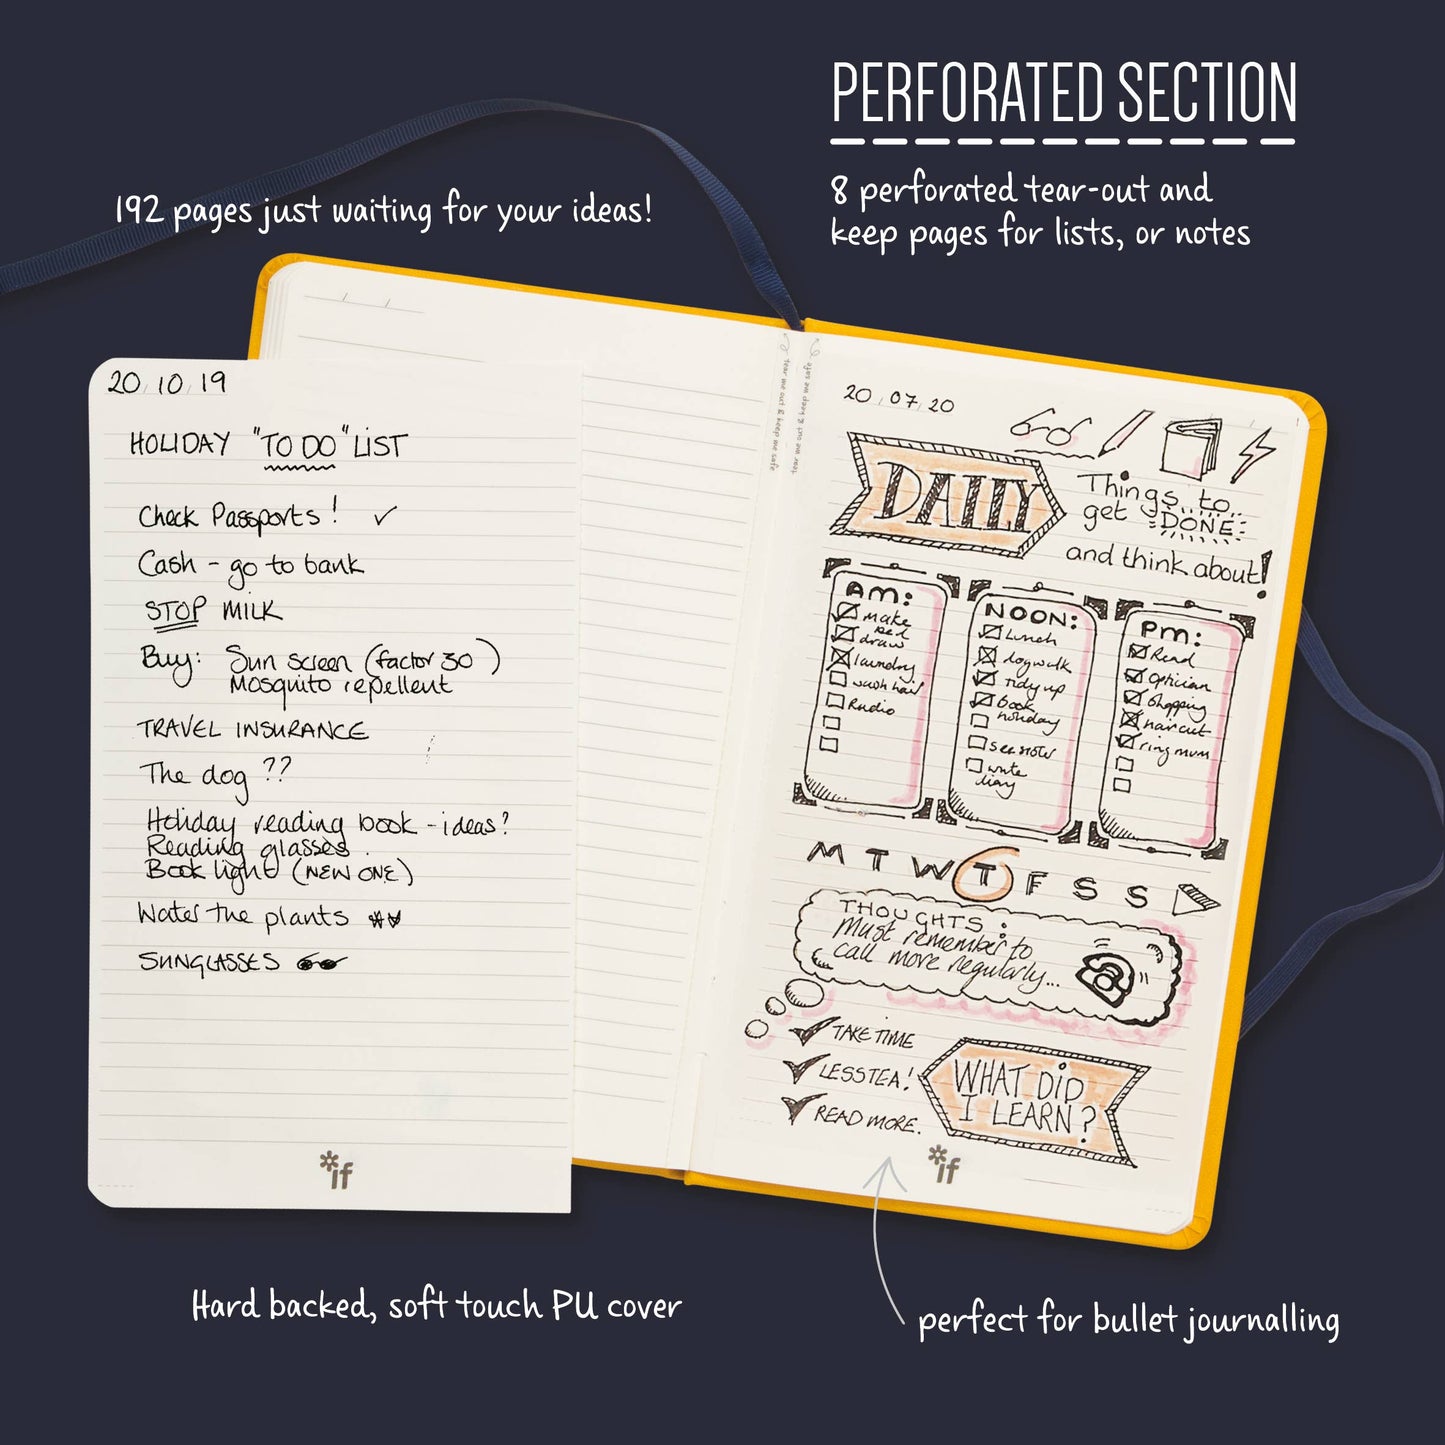 PERFORATED SECTION
8 perforated tear-out and
keep pages for lists, or notes
192 pages just waiting for your ideas!
20/10/19
HOLIDAY "TO DO" LIST
Check Passports! ✓
Cash - go to bank
STOP MILK
Buy: Sun screen (factor 30)
Mosquito repellent
TRAVEL INSURANCE
The dog ??
Holiday reading book - ideas?
Reading glasses.
Book light (NEW ONE)
Water the plants
SUNGLASSES
*if
tear me out & keep me safe
tear me out & keep me safe
20/07/20
DAILY
Things to
get DONE
and think about!
AM:
make
bed
draw
laundry
wash hair
Radio
NOON:
Lunch
dogwalk
Tidy up
book
holiday
see sister
write
diary
Pm:
Read
Optician
Shopping
haircut
ring mum
M T W T F S S
THOUGHTS:
Must remember to
call more regularly...
TAKE TIME
LESS TEA!
READ MORE.
WHAT DID
I LEARN?
*if
Hard backed, soft touch PU cover
perfect for bullet journalling